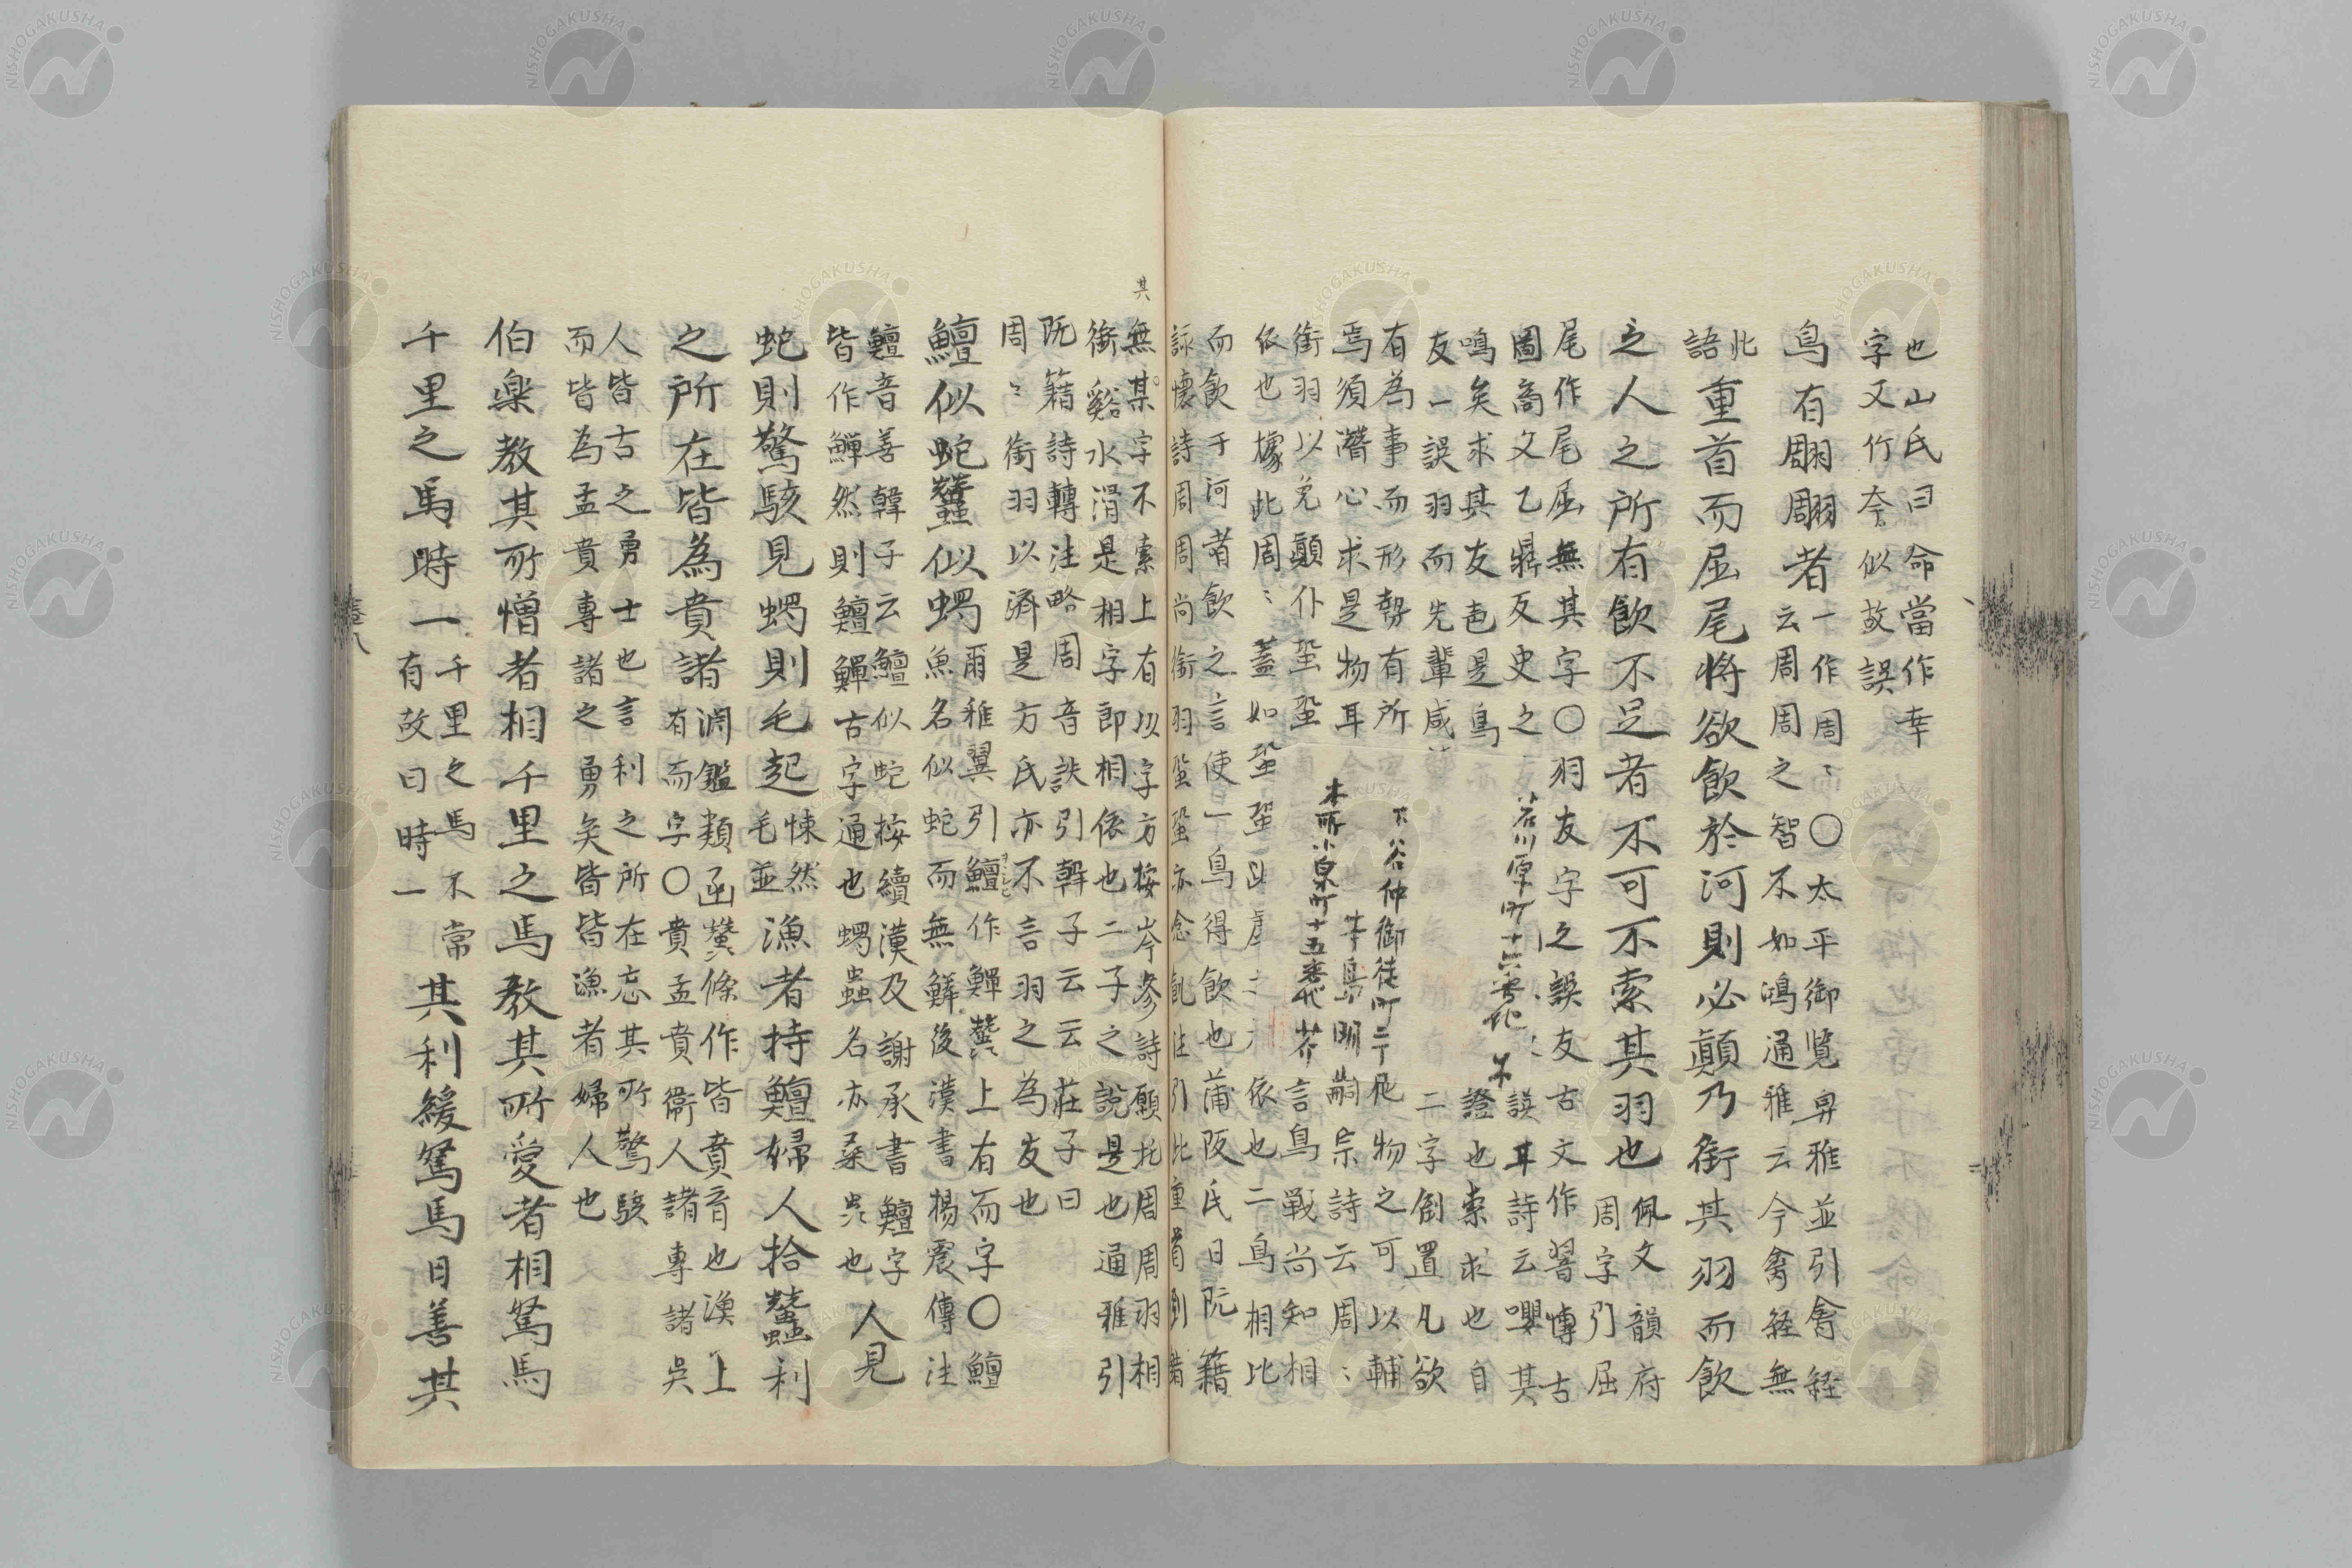 也山氏曰命當作幸
字又竹夲似故誤
鳥有翢翢者
一作周〻〇太平御覧埤雅並引禽経
云周周之智不如鴻通雅云今禽経無
此
語
重首而屈尾将欲飲於河則必顛乃銜其羽而飲
之人之所有飲不足者不可不索其羽也
佩文韻府
周字引屈
尾作尾屈無其字〇羽友字之誤友古文作習傅古
圖高文乙鼎友史之
誤耳詩云嚶其
鳴矣求其友邑是鳥
證也索求也自
友一誤羽而先輩咸
二字創置凡欲
有為事而形勢有所
物之可以輔
焉須潜心求是物耳
嗣宗詩云周〻
銜羽以免顛仆蛩蛩
言鳥戦尚知相
依也據此周〻蓋如蛩蛩
依也二鳥相比
而飲于河者飲之言使一鳥得飲也蒲阪氏曰阮籍
詠懐詩周周尚銜羽蛩蛩亦念飢注引此重首
谷川原町十六番地
下谷仲御徒町二丁
本所小泉町十五番地
其
無某字不索上有以字方按岑參詩願托周周羽相
銜谿水湄是相字即相依也二子之説是也通雅引
阮籍詩轉注略周音詄引韓子云云莊子曰
周〻銜羽以濟是方氏亦不言羽之為友也
鱣似蛇蠶似蠋
爾雅翼引鱣作鱓蠶上有而字〇鱣
魚名似蛇而無鱗後漢書楊震傳注
鱣音善韓子云鱣似蛇按續漢及謝承書鱣字
皆作鱓然則鱣鱓古字通也蠋蟲名亦桑
也
人見
蛇則驚駭見蠋則毛起
悚然
毛並
漁者持鱣婦人拾蠶利
之所在皆為賁諸
淵鑑類函蠶條作皆賁育也漁上
有而字〇賁孟賁衞人諸專諸吳
人皆古之勇士也言利之所在忘其所驚駭
而皆為孟賁專諸之勇矣皆皆漁者婦人也
伯楽教其所憎者相千里之馬教其所愛者相駑馬
千里之馬時一
千里之馬不常
有故曰時一
其利緩駑馬日善其